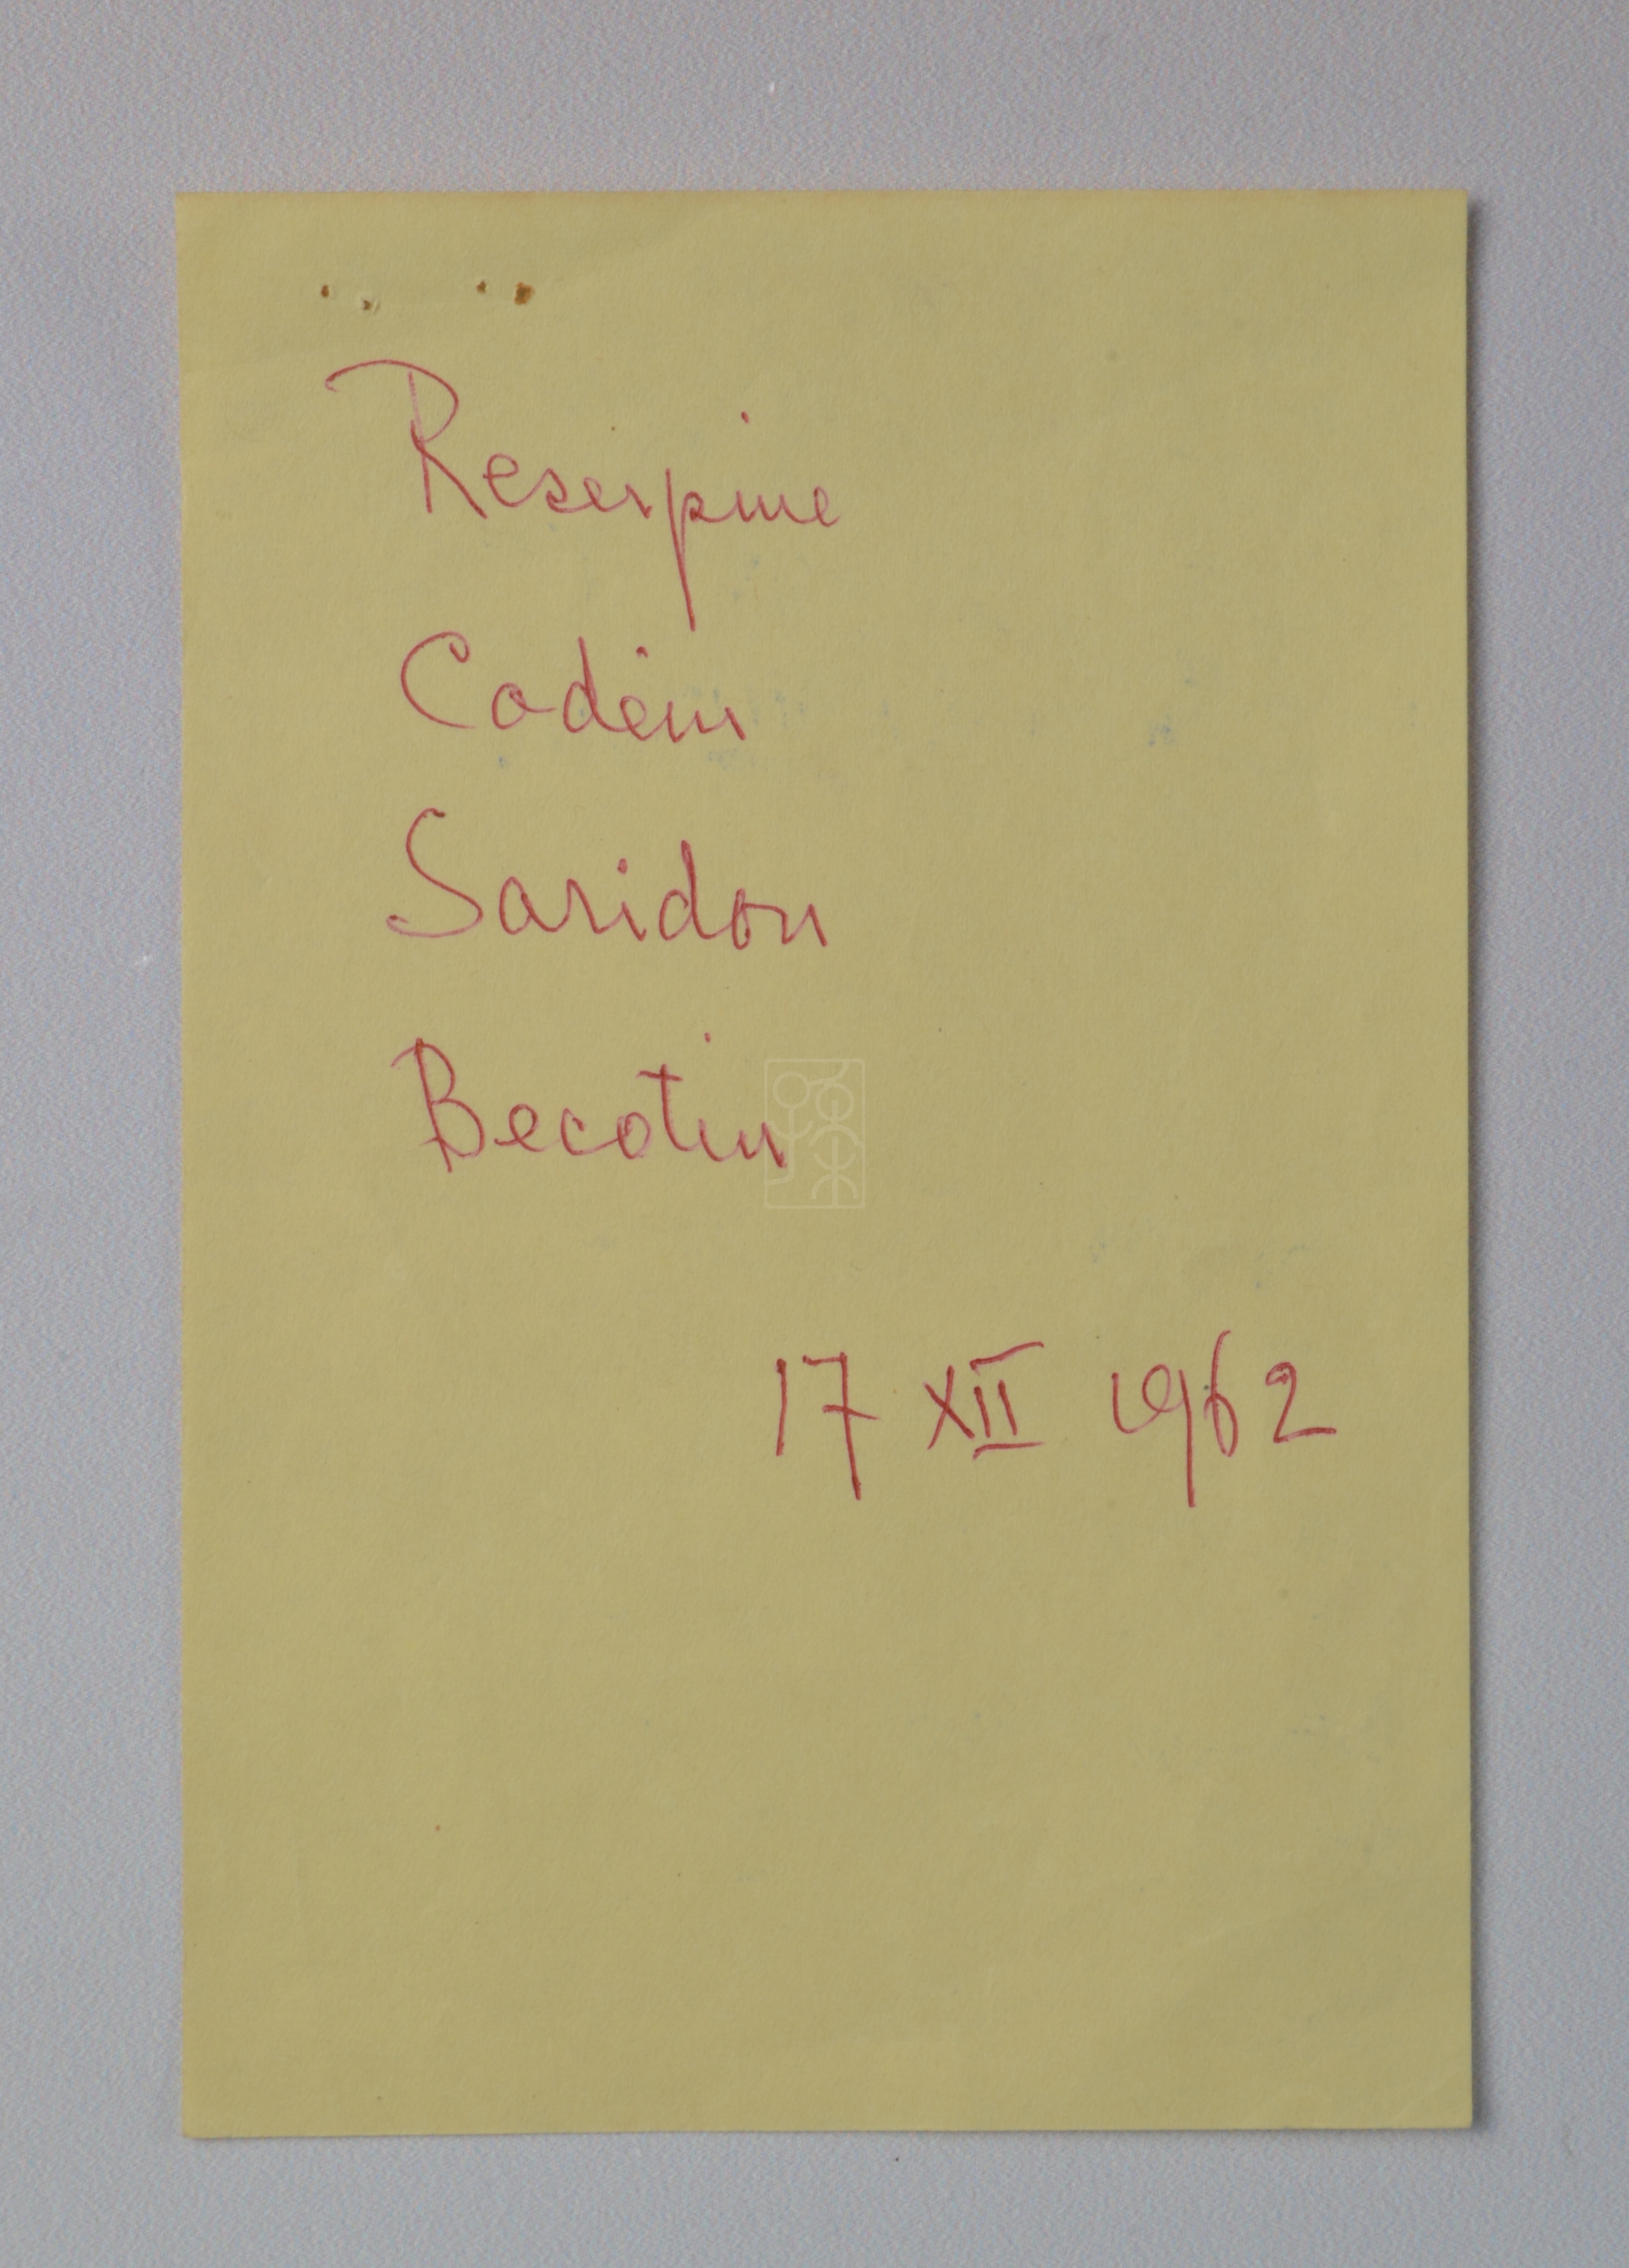 Reserpine
Codein
Saridon
Becotin
17 XII 1962